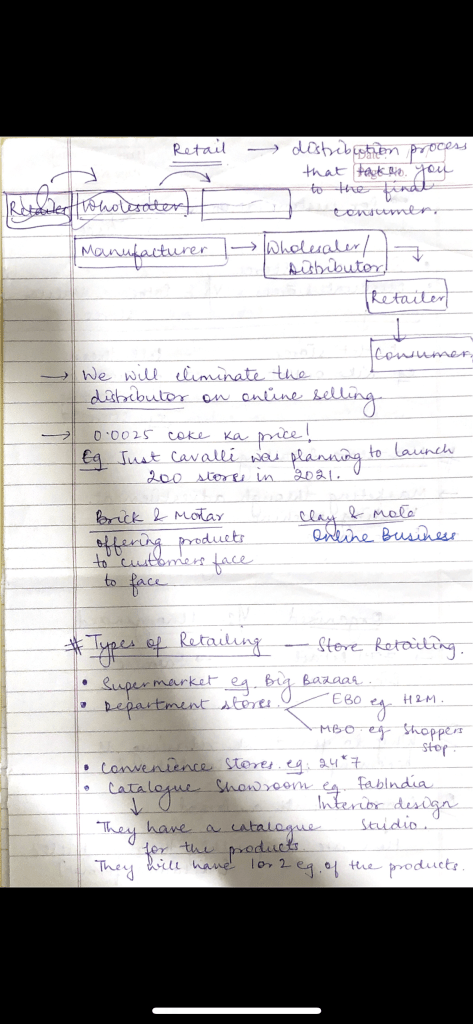 Retail → distribution process
that takes you
to the final
consumer.
Retailer Wholesaler
Manufacturer → Wholesaler/
Distributor
Retailer
Consumer
→ We will eliminate the
distributor on online selling
→ 0.0025 coke ka price!
Eg Just Cavalli was planning to launch
200 stores in 2021.
Brick & Motar
offering products
to customers face
to face
Clay & Mota
Online Business
# Types of Retailing — Store Retailing.
• Supermarket eg. Big Bazaar.
• Department stores. EBO eg H&M.
MBO eg Shoppers
Stop.
• Convenience Stores. eg. 24*7
• Catalogue Showroom eg FabIndia
Interior design
Studio.
They have a catalogue
for the products
They will have 1 or 2 eg. of the products.